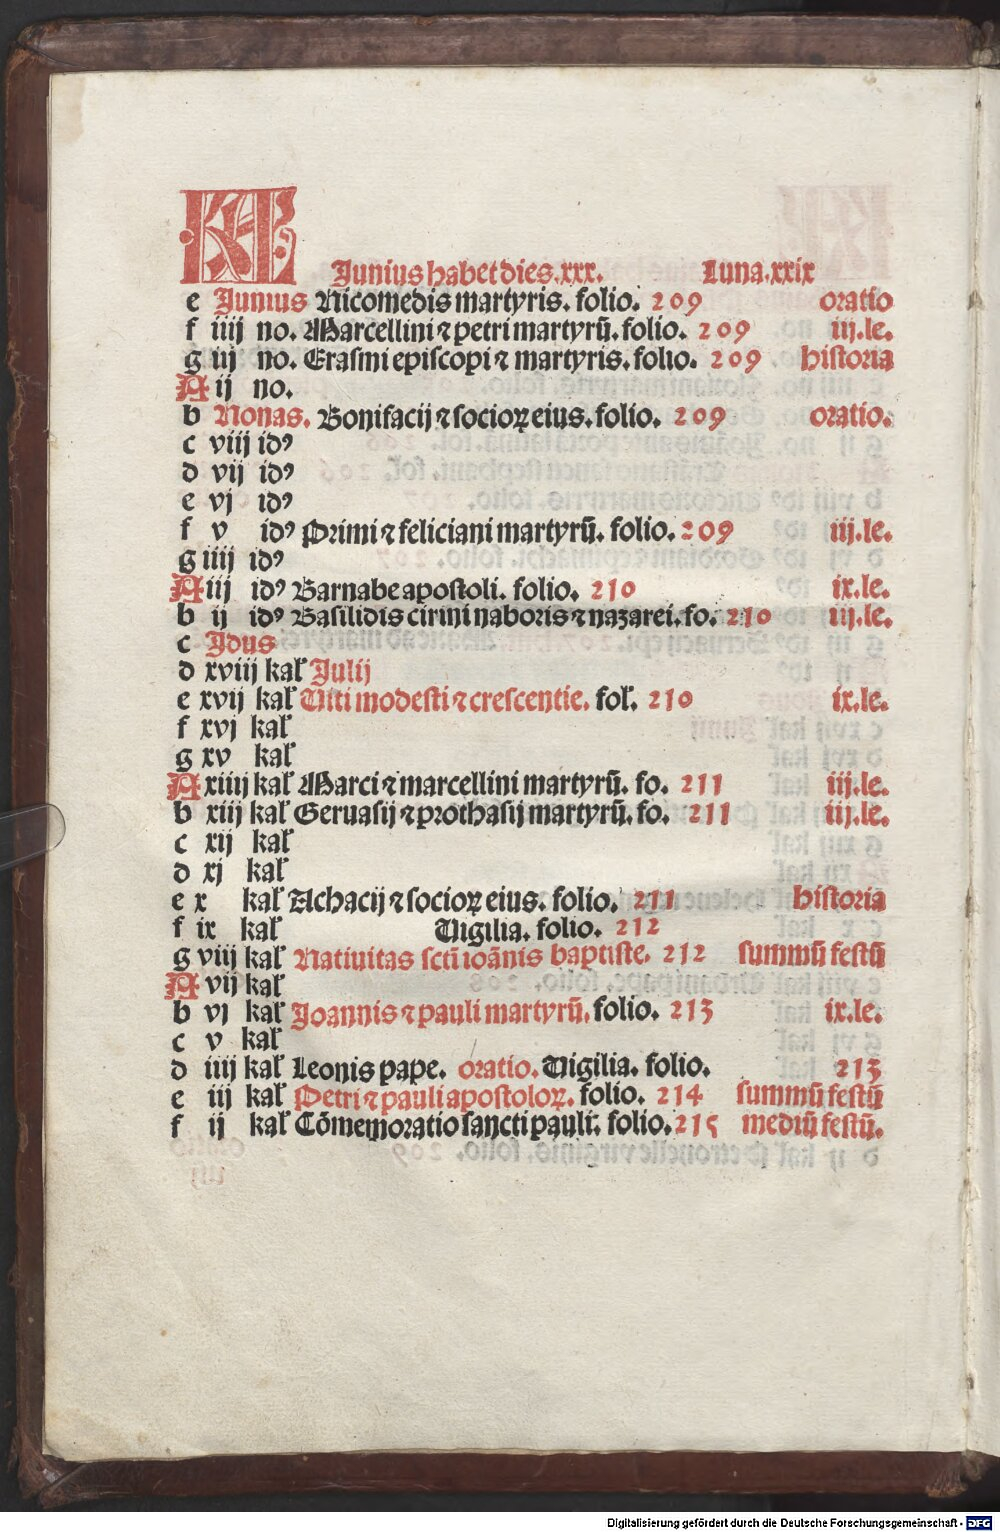 KL Junius habet dies.xxx. Luna.xxix
e Junius Nicomedis martyris. folio. 209 oratio
f iiij no. Marcellini ⁊ petri martyrū. folio. 209 iij.le.
g iij no. Erasmi episcopi ⁊ martyris. folio. 209 historia
A ij no.
b Nonas. Bonifacij ⁊ socioꝝ eius. folio. 209 oratio.
c viij idꝰ
d vij idꝰ
e vj idꝰ
f v idꝰ Primi ⁊ feliciani martyrū. folio. 209 iij.le.
g iiij idꝰ
A iij idꝰ Barnabe apostoli. folio. 210 ix.le.
b ij idꝰ Basilidis cirini naboris ⁊ nazarei. fo. 210 iij.le.
c Idus
d xviij kal̛ Julij
e xvij kal̛ Viti modesti ⁊ crescentie. fol̛. 210 ix.le.
f xvj kal̛
g xv kal̛
A xiiij kal̛ Marci ⁊ marcellini martyrū. fo. 211 iij.le.
b xiij kal̛ Geruasij ⁊ prothasij martyrū. fo. 211 iij.le.
c xij kal̛
d xj kal̛
e x kal̛ Achacij ⁊ socioꝝ eius. folio. 211 historia
f ix kal̛ Vigilia. folio. 212
g viij kal̛ Natiuitas sctī ioānis baptiste. 212 summū festū
A vij kal̛
b vj kal̛ Joannis ⁊ pauli martyrū. folio. 213 ix.le.
c v kal̛
d iiij kal̛ Leonis pape. oratio. Vigilia. folio. 213
e iij kal̛ Petri ⁊ pauli apostoloꝝ. folio. 214 summū festū
f ij kal̛ Cōmemoratio sancti pauli. folio. 215 mediū festū.
Digitalisierung gefördert durch die Deutsche Forschungsgemeinschaft - DFG